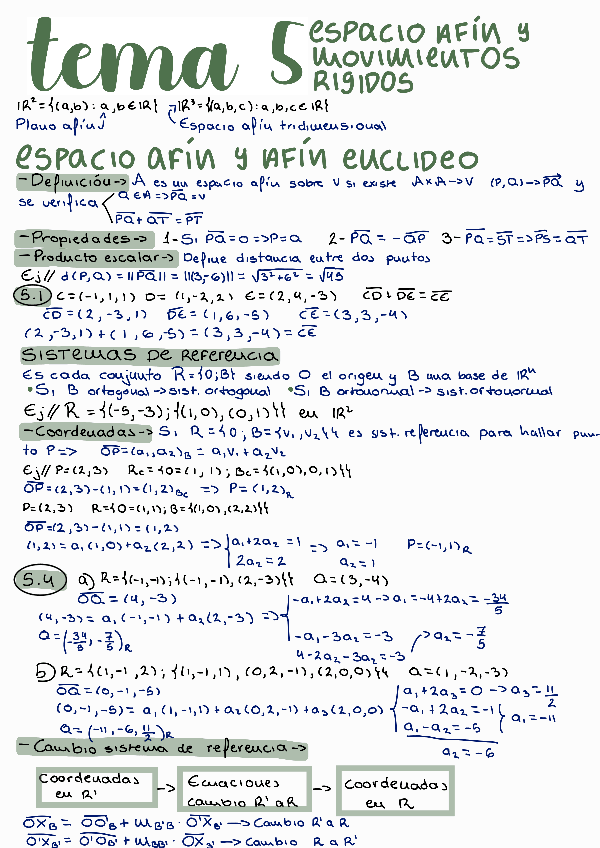 tema 5 ESPACIO AFÍN Y
MOVIMIENTOS
RIGIDOS
IR²={(a,b): a,b∈IR} IR³={(a,b,c): a,b,c∈IR}
Plano afín Espacio afín tridimensional
ESPACIO AFÍN Y AFÍN EUCLIDEO
-Definición-> A es un espacio afín sobre V si existe A×A->V (P,Q)->PQ y
se verifica Q∈A=>PQ=v
PQ+QT=PT
-Propiedades-> 1-Si PQ=0=>P=Q 2-PQ=-QP 3-PQ=ST=>PS=QT
-Producto escalar-> Define distancia entre dos puntos
Ej// d(P,Q)=||PQ||=||(3,-6)||=√3²+6²=√45
5.1 C=(-1,1,1) D=(1,-2,2) E=(2,4,-3) CD+DE=CE
CD=(2,-3,1) DE=(1,6,-5) CE=(3,3,-4)
(2,-3,1)+(1,6,-5)=(3,3,-4)=CE
SISTEMAS DE REFERENCIA
Es cada conjunto R={0;B} siendo O el origen y B una base de IRⁿ
•Si B ortogonal->sist. ortogonal •Si B ortonormal->sist. ortonormal
Ej// R={(-5,-3);{(1,0),(0,1)}} en IR²
-Coordenadas-> Si R={0;B={v₁,v₂}} es sist. referencia para hallar pun-
to P=> OP=(a₁,a₂)B=a₁v₁+a₂v₂
Ej// P=(2,3) Rc={0=(1,1);Bc={(1,0),0,1)}}
OP=(2,3)-(1,1)=(1,2)Bc => P=(1,2)R
P=(2,3) R={0=(1,1);B={(1,0),(2,2)}}
OP=(2,3)-(1,1)=(1,2)
(1,2)=a₁(1,0)+a₂(2,2) => a₁+2a₂=1 => a₁=-1 P=(-1,1)R
2a₂=2 a₂=1
5.4 a) R={(-1,-1);{(-1,-1),(2,-3)}} Q=(3,-4)
OQ=(4,-3) -a₁+2a₂=4->a₁=-4+2a₂=-34/5
(4,-3)=a₁(-1,-1)+a₂(2,-3)=>
Q=(-34/5,-7/5)R -a₁-3a₂=-3 a₂=-7/5
4-2a₂-3a₂=-3
b) R={(1,-1,2);{(1,-1,1),(0,2,-1),(2,0,0)}} Q=(1,-2,-3)
OQ=(0,-1,-5) a₁+2a₃=0->a₃=11/2
(0,-1,-5)=a₁(1,-1,1)+a₂(0,2,-1)+a₃(2,0,0) -a₁+2a₂=-1 a₁=-11
Q=(-11,-6,11/2)R a₁-a₂=-5
a₂=-6
-Cambio sistema de referencia->
Coordenadas en R' -> Ecuaciones cambio R' a R -> Coordenadas en R
OXB=OO'B+MB'B·O'XB'->Cambio R' a R
O'XB'=O'OB'+MBB'·OXB->Cambio R a R'